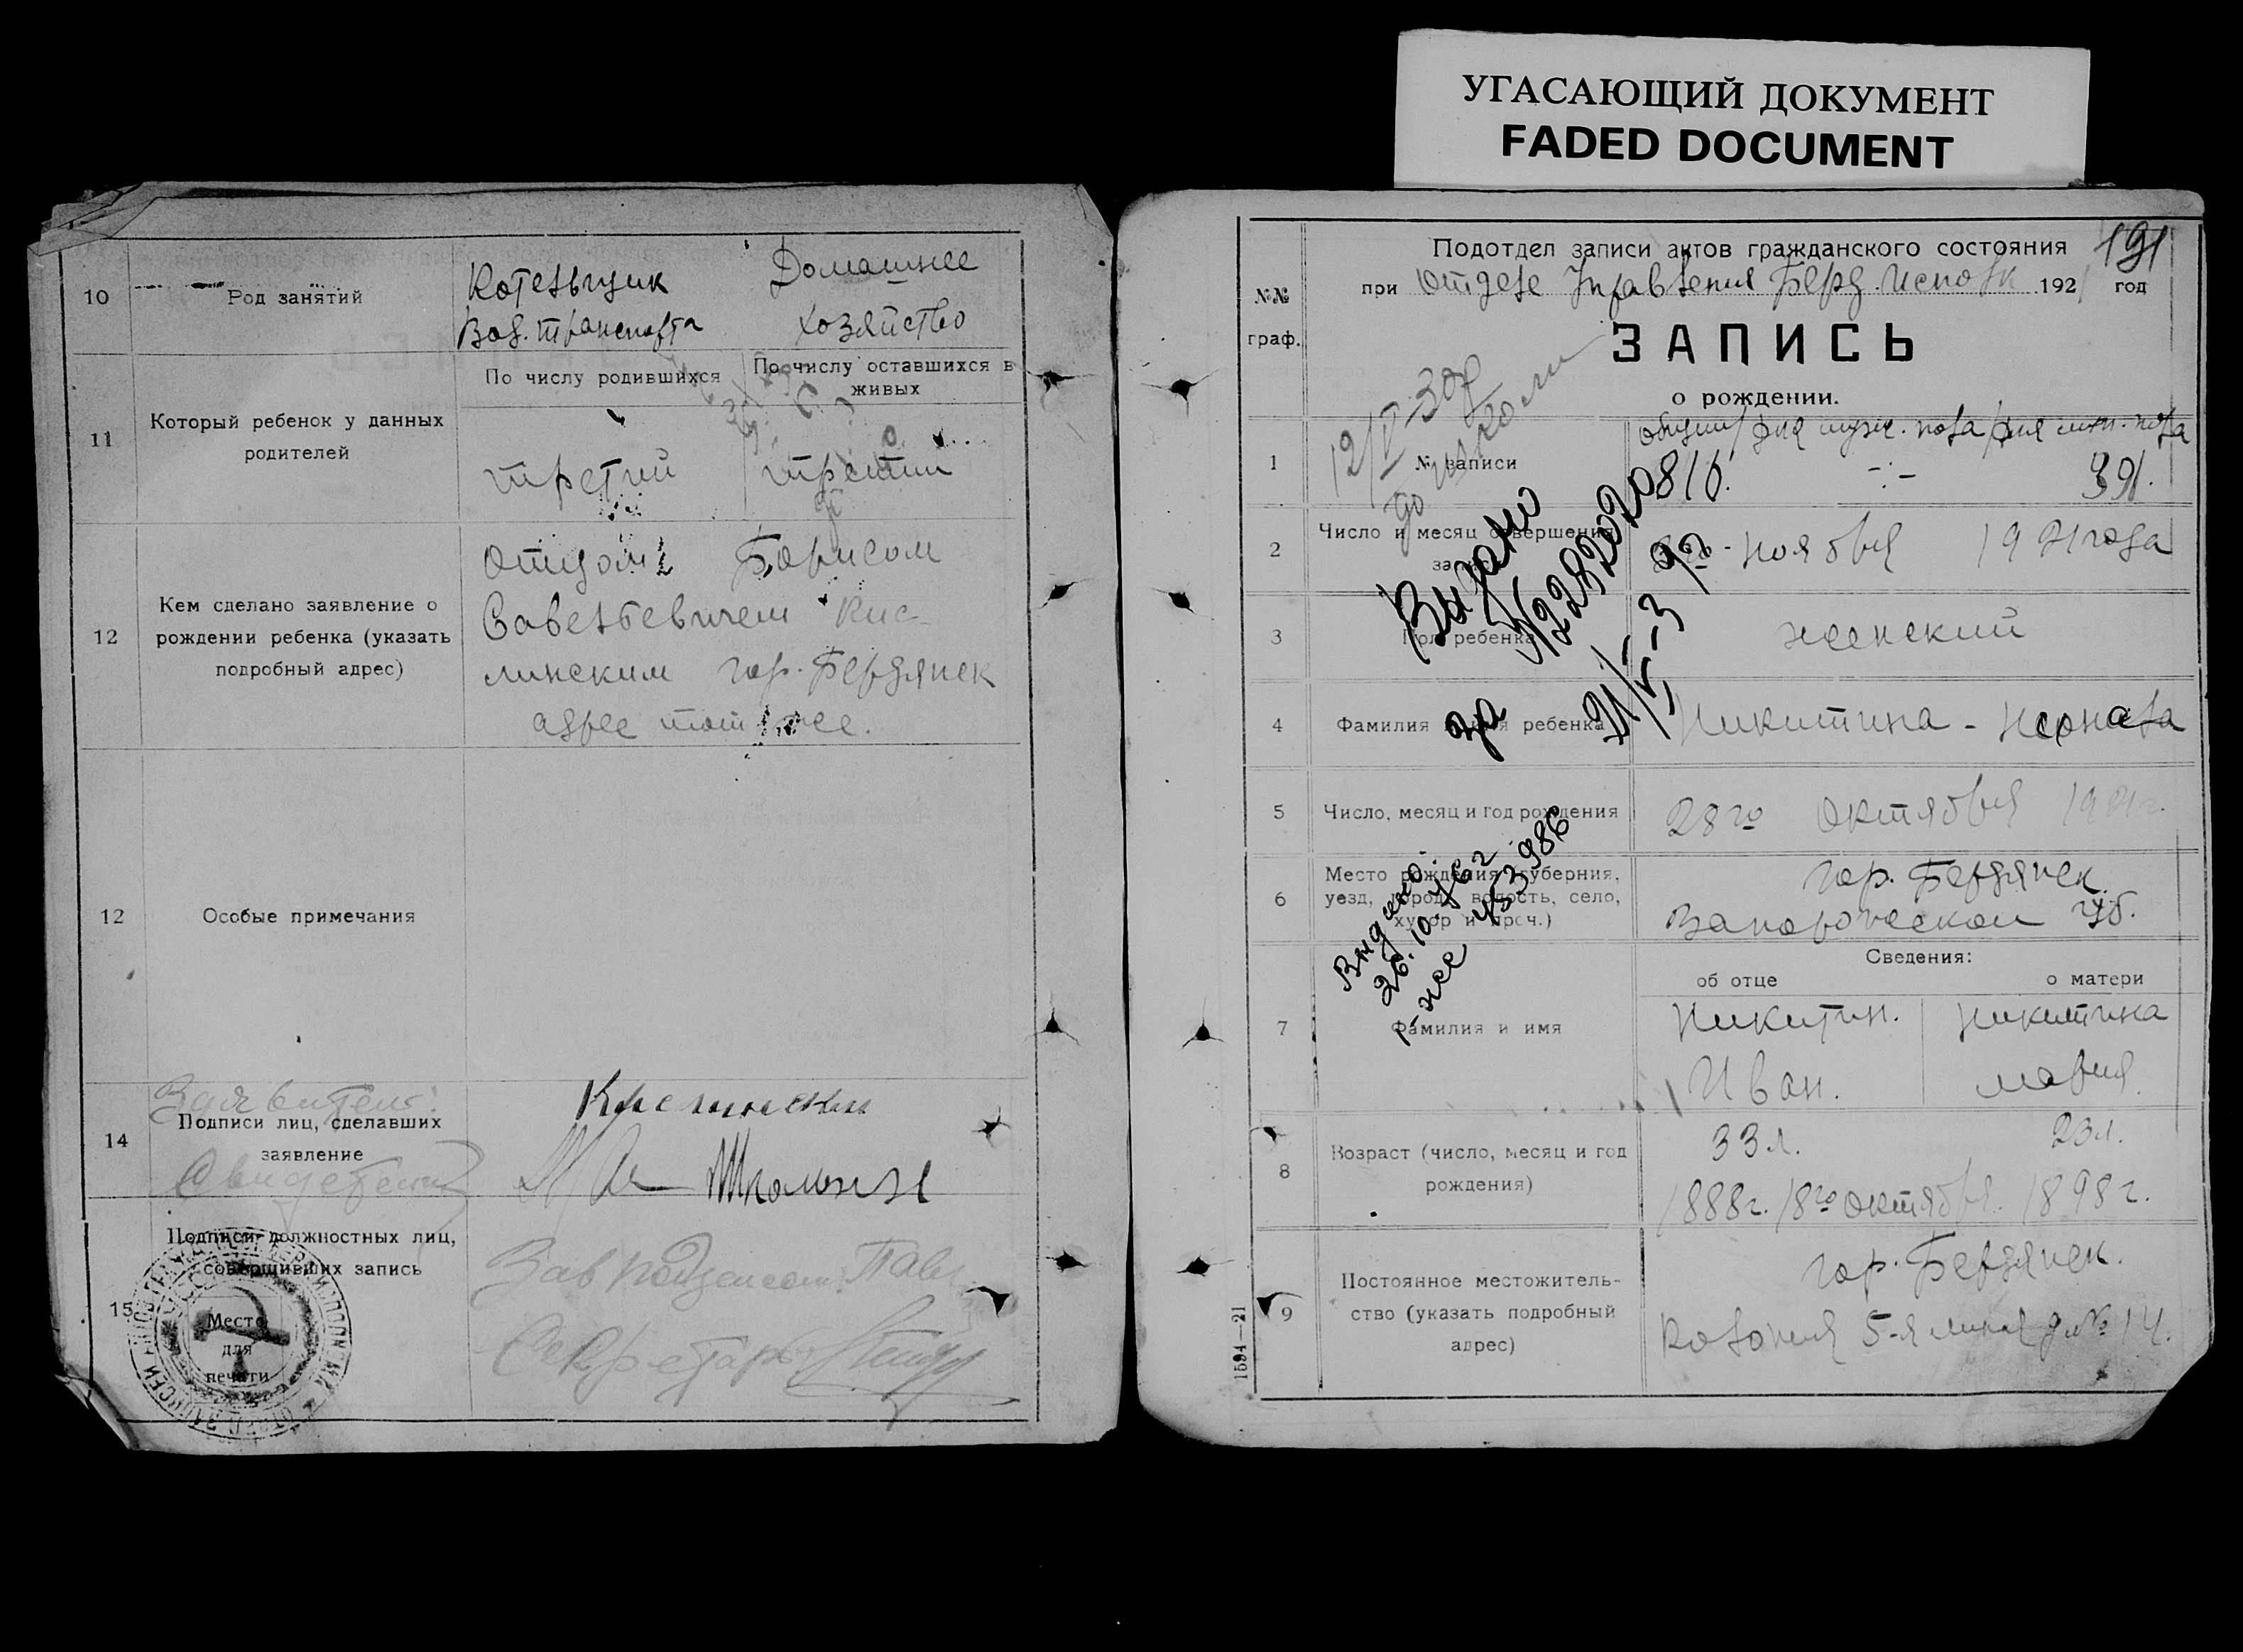 УГАСАЮЩИЙ ДОКУМЕНТ
FADED DOCUMENT
10
Род занятий
Котельщик
Вод. транспорта
Домашнее
хозяйство
11
Который ребенок у данных
родителей
По числу родившихся
По числу оставшихся в
живых
третий
третий
12
Кем сделано заявление о
рождении ребенка (указать
подробный адрес)
отцом Борисом
Савельевичем Кис-
линским гор. Бердянск
адрес тот же.
12
Особые примечания
14
Заявитель:
Подписи лиц, сделавших
заявление
Свидетели
15
Подписи должностных лиц,
совершивших запись
Место
для
печати
Зав подотделом
Секретарь
191
Подотдел записи актов гражданского состояния
при Отделе Управления Берд. Исполк 192 год
№№
граф.
ЗАПИСЬ
о рождении.
12/V-30г
1
№ записи
общий/для мужс. пола/для жен. пола
816.
-:-
391.
2
Число и месяц совершения
записи
Ноября 1921 года
3
Пол ребенка
женский
4
Фамилия и имя ребенка
Никитина -
5
Число, месяц и год рождения
28го Октября 1921г.
6
Место рождения (губерния,
уезд, город, волость, село,
хутор и проч.)
гор. Бердянск
Запорожской губ.
Сведения:
об отце
о матери
7
Фамилия и имя
Никитин.
Иван.
Никитина
Мария.
8
Возраст (число, месяц и год
рождения)
33 л.
23 л.
1888г. 18го Октября. 1898 г.
9
Постоянное местожитель-
ство (указать подробный
адрес)
гор. Бердянск.
Колония 5-я линия д. № 14.
Выдано
Выдано
1594—21